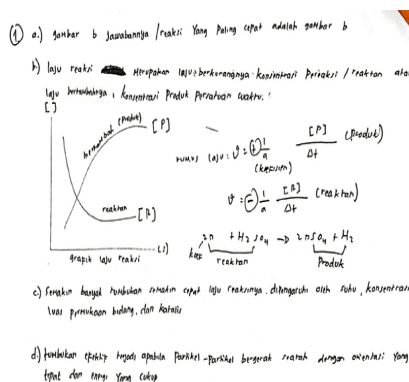 ① a.) gambar b Jawabannya / reaksi Yang Paling cepat adalah gambar b
b) laju reaksi Merupakan laju berkurangnya konsentrasi Pereaksi / reaktan atau
laju bertambahnya konsentrasi Produk Persatuan waktu.
[ ]
bertambah (produk) [P]
reaktan [R]
(s)
grafik laju reaksi
rumus laju : v = + 1/a [P]/Δt (produk)
(koefisien)
v = - 1/a [R]/Δt (reaktan)
Zn + H2SO4 → ZnSO4 + H2
koef reaktan Produk
c.) semakin banyak tumbukan semakin cepat laju reaksinya. dipengaruhi oleh suhu, konsentrasi
luas permukaan bidang, dan katalis
d.) tumbukan efektif terjadi apabila Partikel-Partikel bergerak searah dengan orientasi Yang
tepat dan energi Yang cukup